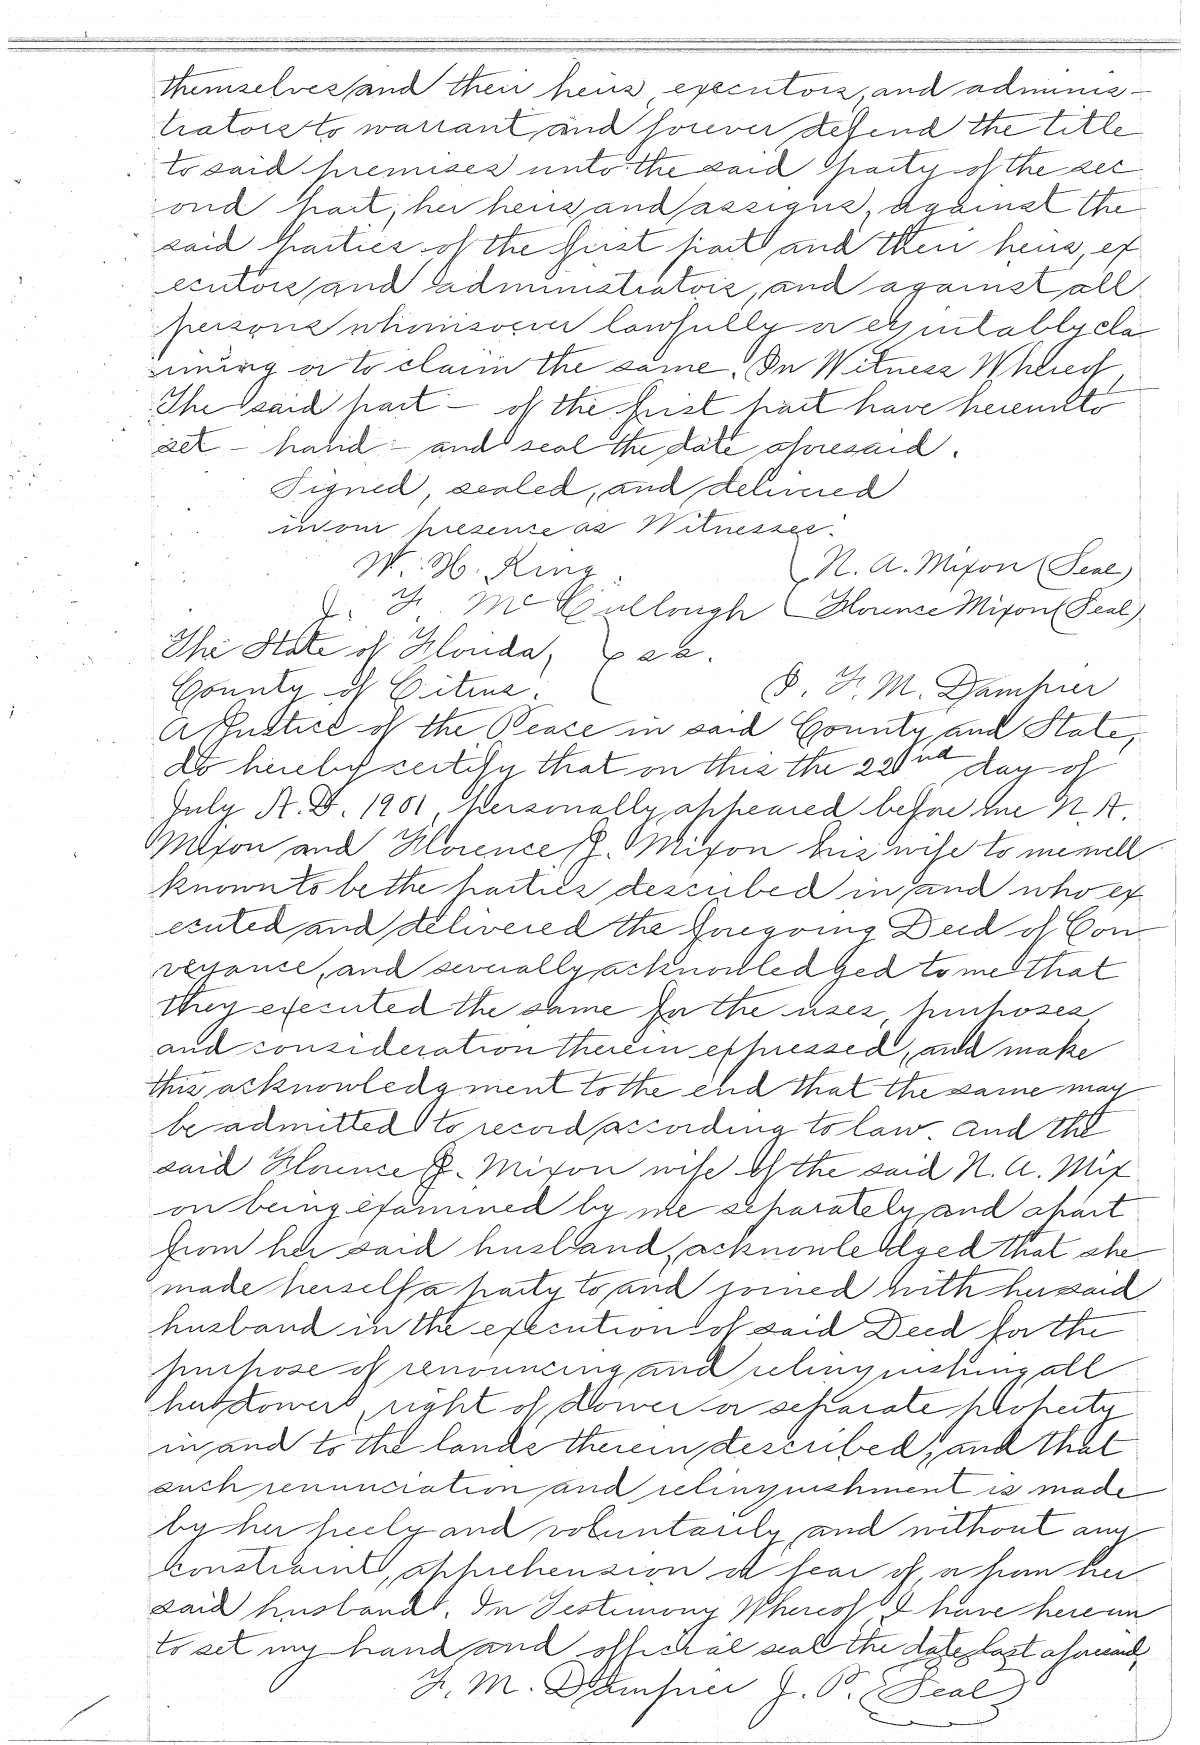 themselves and their heirs, executors, and adminis-
trators to warrant and forever defend the title
to said premises unto the said party of the sec
ond part, her heirs and assigns, against the
said parties of the first part and their heirs, ex
ecutors and administrators, and against all
persons whomsoever lawfully or equitably cla
iming or to claim the same. In Witness Whereof,
The said part - of the first part have hereunto
set - hand - and seal the date aforesaid.
Signed, sealed, and delivered
in our presence as Witnesses.
W. H. King } N. A. Mixon (Seal)
J. F. McCullough { Florence Mixon (Seal)
The State of Florida, } ss.
County of Citrus. I, F. M. Dampier
A Justice of the Peace in said County and State,
do hereby certify that on this the 22nd day of
July A. D. 1901, personally appeared before me N. A.
Mixon and Florence J. Mixon his wife to me well
known to be the parties described in and who ex
ecuted and delivered the foregoing Deed of Con
veyance, and severally acknowledged to me that
they executed the same for the uses, purposes,
and consideration therein expressed, and make
this acknowledgment to the end that the same may
be admitted to record according to law. And the
said Florence J. Mixon wife of the said N. A. Mix
on being examined by me separately and apart
from her said husband, acknowledged that she
made herself a party to and joined with her said
husband in the execution of said Deed for the
purpose of renouncing and relinquishing all
her dower, right of dower or separate property
in and to the lands therein described, and that
such renunciation and relinquishment is made
by her freely and voluntarily and without any
constraint, apprehension or fear of, or from her
said husband. In Testimony Whereof I have hereun
to set my hand and official seal the date last aforesaid,
F. M. Dampier J. P. (Seal)